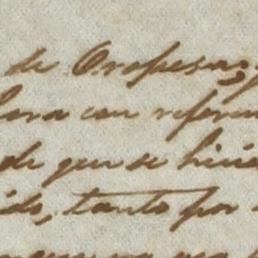 de Oropesa, y
lara con referen
de que se hicie
ido, tanto por